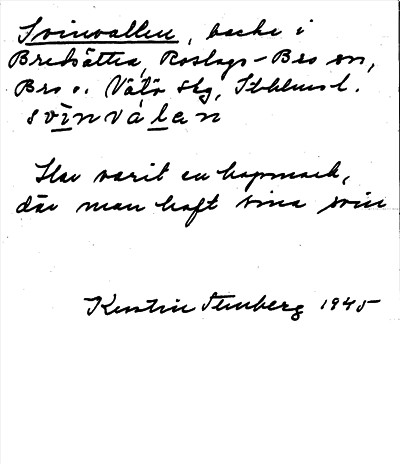 Svinvallen, backe i
Bredsättra, Roslags-Bro sn,
Bro o. Vätö skg, Sthlms l.
svinválan
Har varit en hagmark,
där man haft sina svin
Kerstin Stenberg 1945